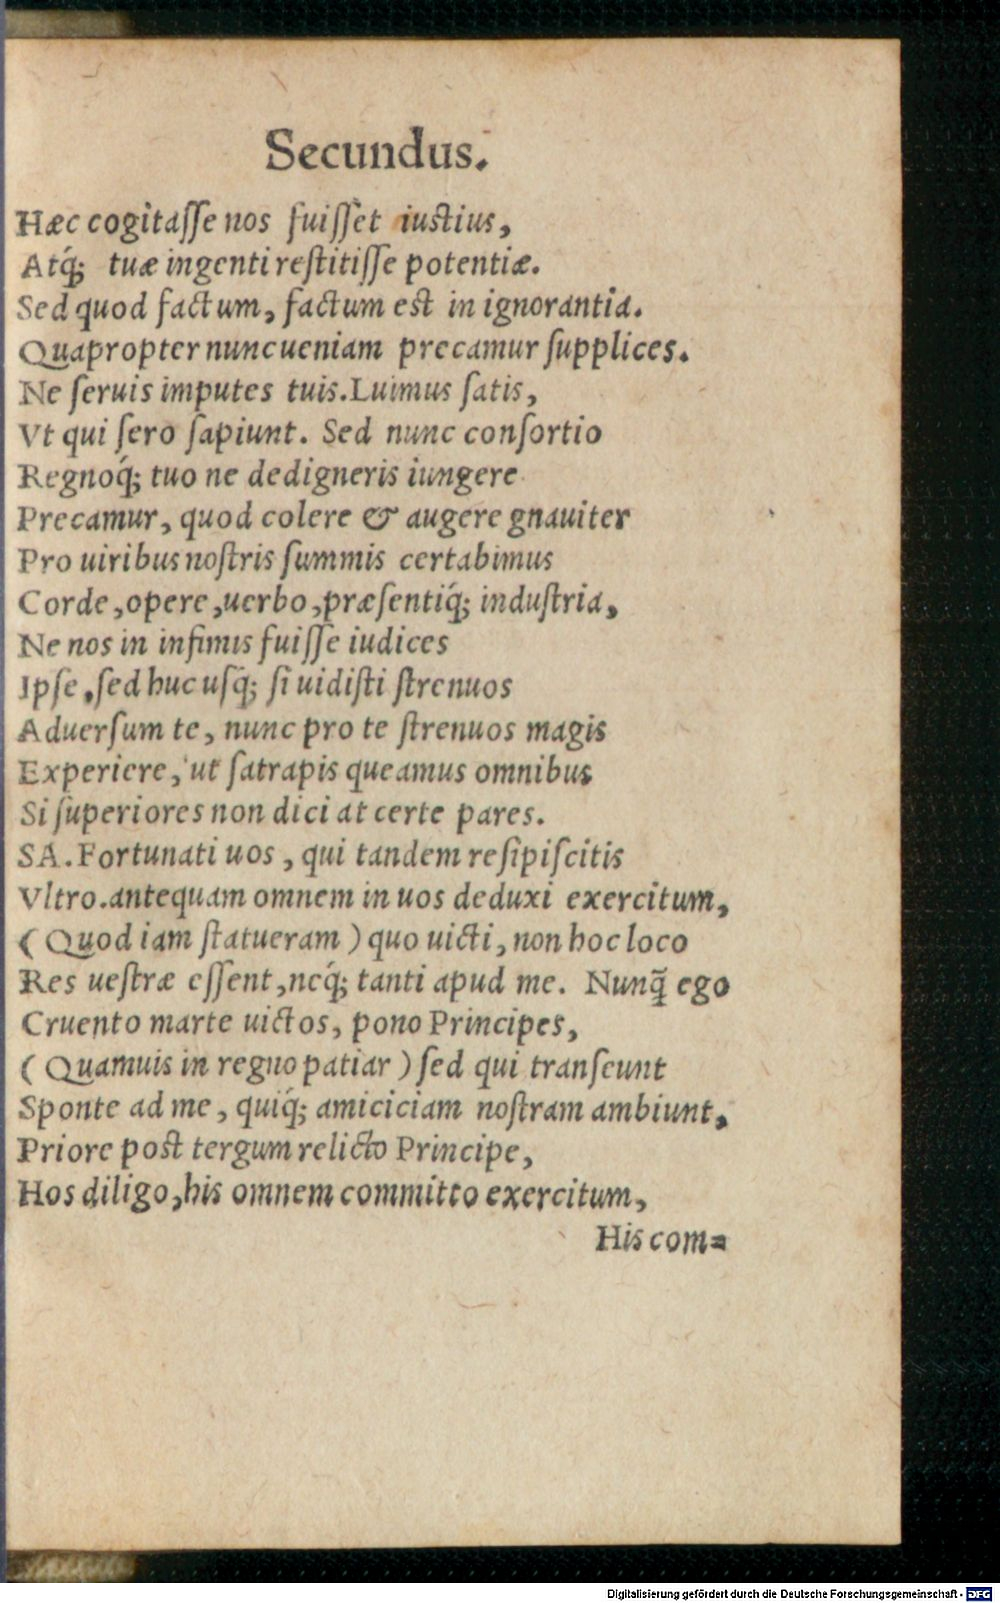 Secundus.
Hæc cogitaſſe nos fuiſſet iustius,
Atq́; tuæ ingenti reſtitiſſe potentiæ.
Sed quod factum, factum est in ignorantia.
Quapropter nunc ueniam precamur ſupplices.
Ne ſeruis imputes tuis. Luimus ſatis,
Vt qui ſero ſapiunt. Sed nunc conſortio
Regnoq́; tuo ne dedigneris iungere
Precamur, quod colere & augere gnauiter
Pro uiribus noſtris ſummis certabimus
Corde, opere, uerbo, præſentiq́; induſtria,
Ne nos in infimis fuiſſe iudices
Ipſe, ſed huc uſq́; ſi uidiſti ſtrenuos
Aduerſum te, nunc pro te ſtrenuos magis
Experiere, ut ſatrapis queamus omnibus
Si ſuperiores non dici at certe pares.
SA. Fortunati uos, qui tandem reſipiſcitis
Vltro. antequam omnem in uos deduxi exercitum,
(Quod iam ſtatueram) quo uicti, non hoc loco
Res ueſtræ eſſent, neq́; tanti apud me. Nunq̃ ego
Cruento marte uictos, pono Principes,
(Quamuis in regno patiar) ſed qui tranſeunt
Sponte ad me, quiq́; amiciciam noſtram ambiunt,
Priore post tergum relicto Principe,
Hos diligo, his omnem committo exercitum,
His com=
Digitalisierung gefördert durch die Deutsche Forschungsgemeinschaft - DFG